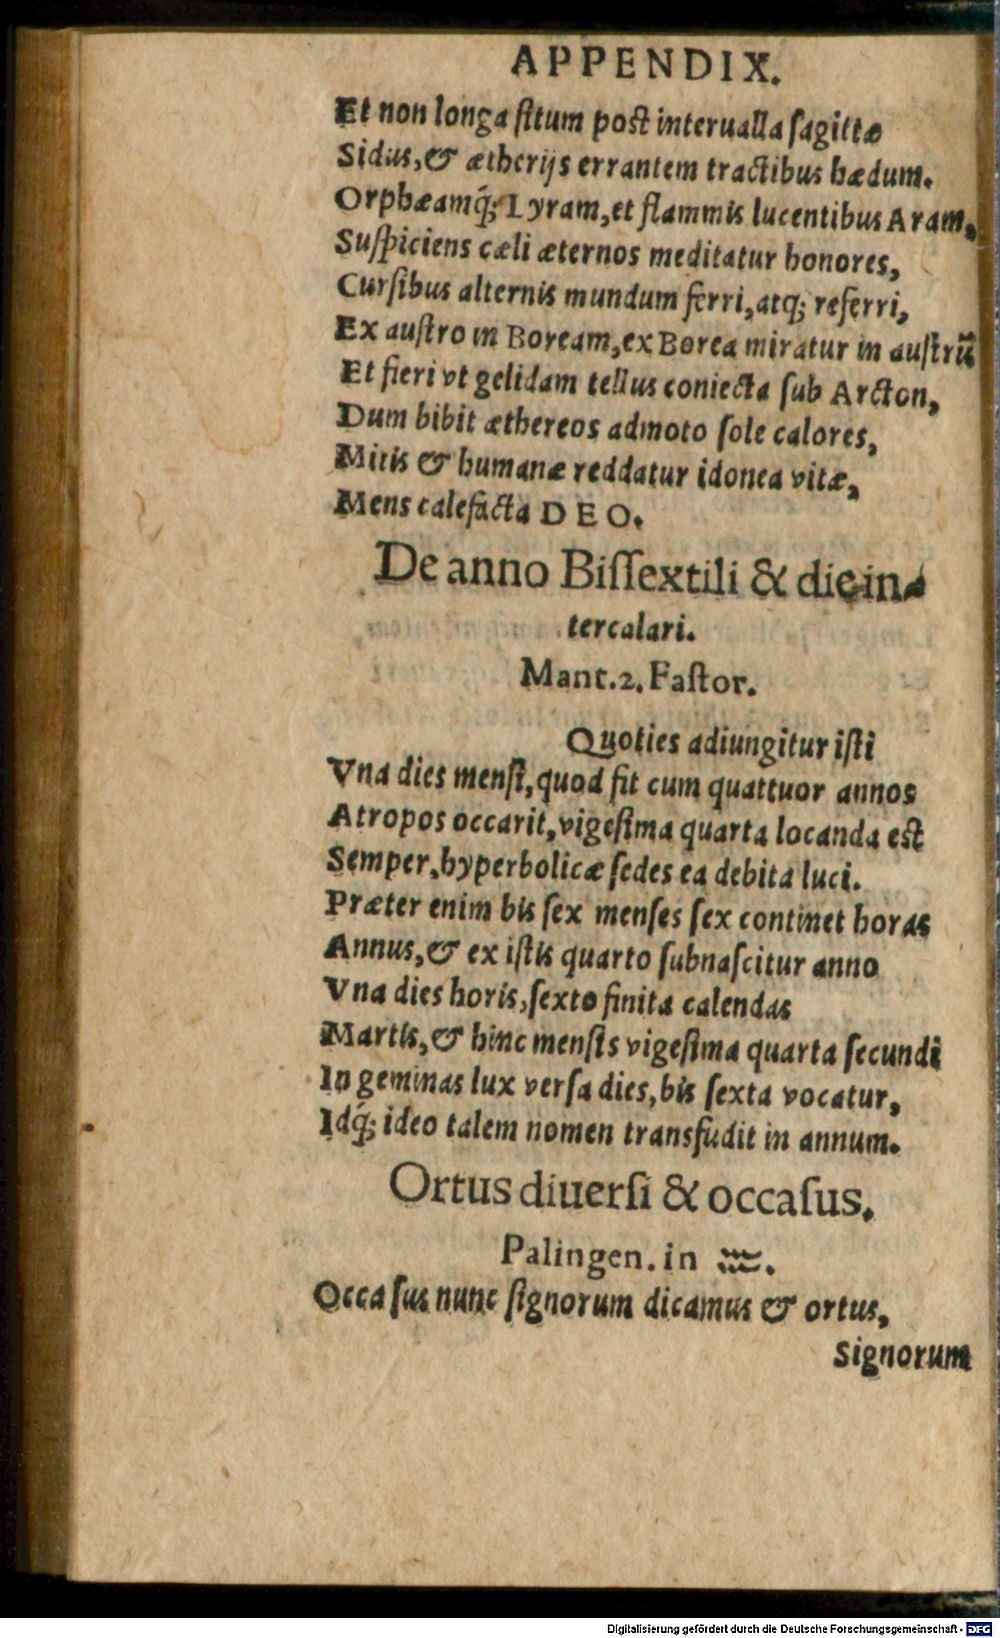 APPENDIX.
Et non longa ſitum poſt interualla ſagittæ
Sidus, & ætherijs errantem tractibus hædum.
Orphæamq́; Lyram, et flammis lucentibus Aram,
Suſpiciens cæli æternos meditatur honores,
Curſibus alternis mundum ferri, atq; referri,
Ex auſtro in Boream, ex Borea miratur in auſtrū
Et fieri vt gelidam tellus coniecta ſub Arcton,
Dum bibit æthereos admoto ſole calores,
Mitis & humanæ reddatur idonea vitæ,
Mens calefacta DEO.
De anno Biſſextili & die in-
tercalari.
Mant. 2. Faſtor.
Quoties adiungitur iſti
Vna dies menſi, quod fit cum quattuor annos
Atropos occarit, vigeſima quarta locanda eſt
Semper, hyperbolicæ ſedes ea debita luci.
Præter enim bis ſex menſes ſex continet horas
Annus, & ex iſtis quarto ſubnaſcitur anno
Vna dies horis, ſexto finita calendas
Martis, & hinc menſis vigeſima quarta ſecundi
In geminas lux verſa dies, bis ſexta vocatur,
Idq́; ideo talem nomen transfudit in annum.
Ortus diuerſi & occaſus.
Palingen. in ♒.
Occaſus nunc ſignorum dicamus & ortus,
Signorum
Digitalisierung gefördert durch die Deutsche Forschungsgemeinschaft - DFG